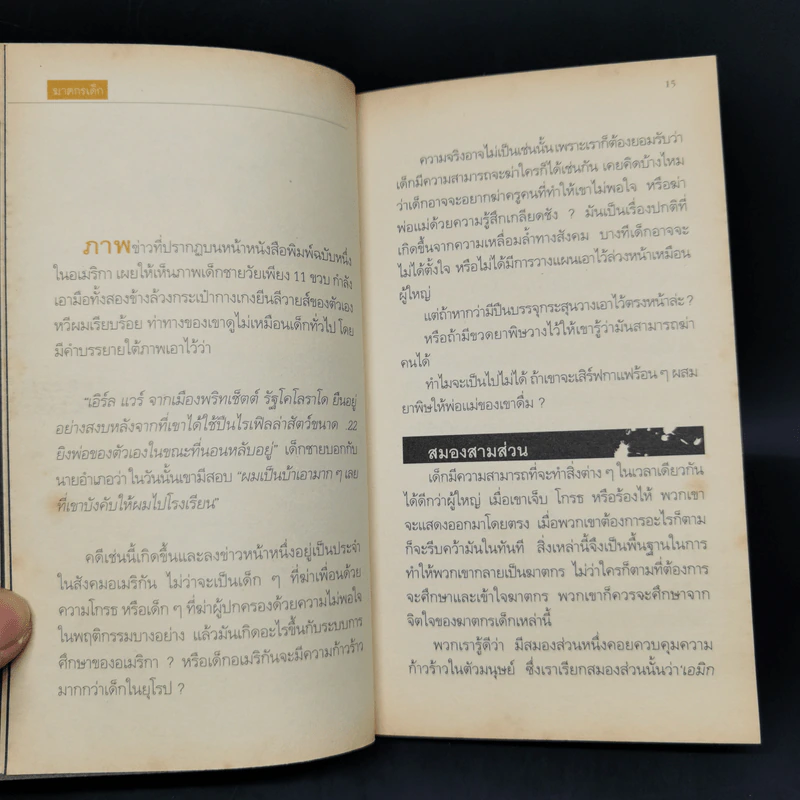 ฆาตกรเด็ก
ภาพข่าวที่ปรากฏบนหน้าหนังสือพิมพ์ฉบับหนึ่ง
ในอเมริกา เผยให้เห็นภาพเด็กชายวัยเพียง 11 ขวบ กำลัง
เอามือทั้งสองข้างล้วงกระเป๋ากางเกงยีนลีวายส์ของตัวเอง
หวีผมเรียบร้อย ท่าทางของเขาดูไม่เหมือนเด็กทั่วไป โดย
มีคำบรรยายใต้ภาพเอาไว้ว่า
"เอิร์ล แวร์ จากเมืองพริทเช็ตต์ รัฐโคโลราโด ยืนอยู่
อย่างสงบหลังจากที่เขาได้ใช้ปืนไรเฟิลล่าสัตว์ขนาด .22
ยิงพ่อของตัวเองในขณะที่นอนหลับอยู่" เด็กชายบอกกับ
นายอำเภอว่า ในวันนั้นเขามีสอบ "ผมเป็นบ้าเอามาก ๆ เลย
ที่เขาบังคับให้ผมไปโรงเรียน"
คดีเช่นนี้เกิดขึ้นและลงข่าวหน้าหนึ่งอยู่เป็นประจำ
ในสังคมอเมริกัน ไม่ว่าจะเป็นเด็ก ๆ ที่ฆ่าเพื่อนด้วย
ความโกรธ หรือเด็ก ๆ ที่ฆ่าผู้ปกครองด้วยความไม่พอใจ
ในพฤติกรรมบางอย่าง แล้วมันเกิดอะไรขึ้นกับระบบการ
ศึกษาของอเมริกา ? หรือเด็กอเมริกันจะมีความก้าวร้าว
มากกว่าเด็กในยุโรป ?
15
ความจริงอาจไม่เป็นเช่นนั้น เพราะเราก็ต้องยอมรับว่า
เด็กมีความสามารถจะฆ่าใครก็ได้เช่นกัน เคยคิดบ้างไหม
ว่าเด็กอาจจะอยากฆ่าครูคนที่ทำให้เขาไม่พอใจ หรือฆ่า
พ่อแม่ด้วยความรู้สึกเกลียดชัง ? มันเป็นเรื่องปกติที่
เกิดขึ้นจากความเหลื่อมล้ำทางสังคม บางทีเด็กอาจจะ
ไม่ได้ตั้งใจ หรือไม่ได้มีการวางแผนเอาไว้ล่วงหน้าเหมือน
ผู้ใหญ่
แต่ถ้าหากว่ามีปืนบรรจุกระสุนวางเอาไว้ตรงหน้าล่ะ ?
หรือถ้ามีขวดยาพิษวางไว้ให้เขารู้ว่ามันสามารถฆ่า
คนได้
ทำไมจะเป็นไปไม่ได้ ถ้าเขาจะเสิร์ฟกาแฟร้อน ๆ ผสม
ยาพิษให้พ่อแม่ของเขาดื่ม ?
สมองสามส่วน
เด็กมีความสามารถที่จะทำสิ่งต่าง ๆ ในเวลาเดียวกัน
ได้ดีกว่าผู้ใหญ่ เมื่อเขาเจ็บ โกรธ หรือร้องไห้ พวกเขา
จะแสดงออกมาโดยตรง เมื่อพวกเขาต้องการอะไรก็ตาม
ก็จะรีบคว้ามันในทันที สิ่งเหล่านี้จึงเป็นพื้นฐานในการ
ทำให้พวกเขากลายเป็นฆาตกร ไม่ว่าใครก็ตามที่ต้องการ
จะศึกษาและเข้าใจฆาตกร พวกเขาก็ควรจะศึกษาจาก
จิตใจของฆาตกรเด็กเหล่านี้
พวกเรารู้ดีว่า มีสมองส่วนหนึ่งคอยควบคุมความ
ก้าวร้าวในตัวมนุษย์ ซึ่งเราเรียกสมองส่วนนั้นว่า'เอมิก